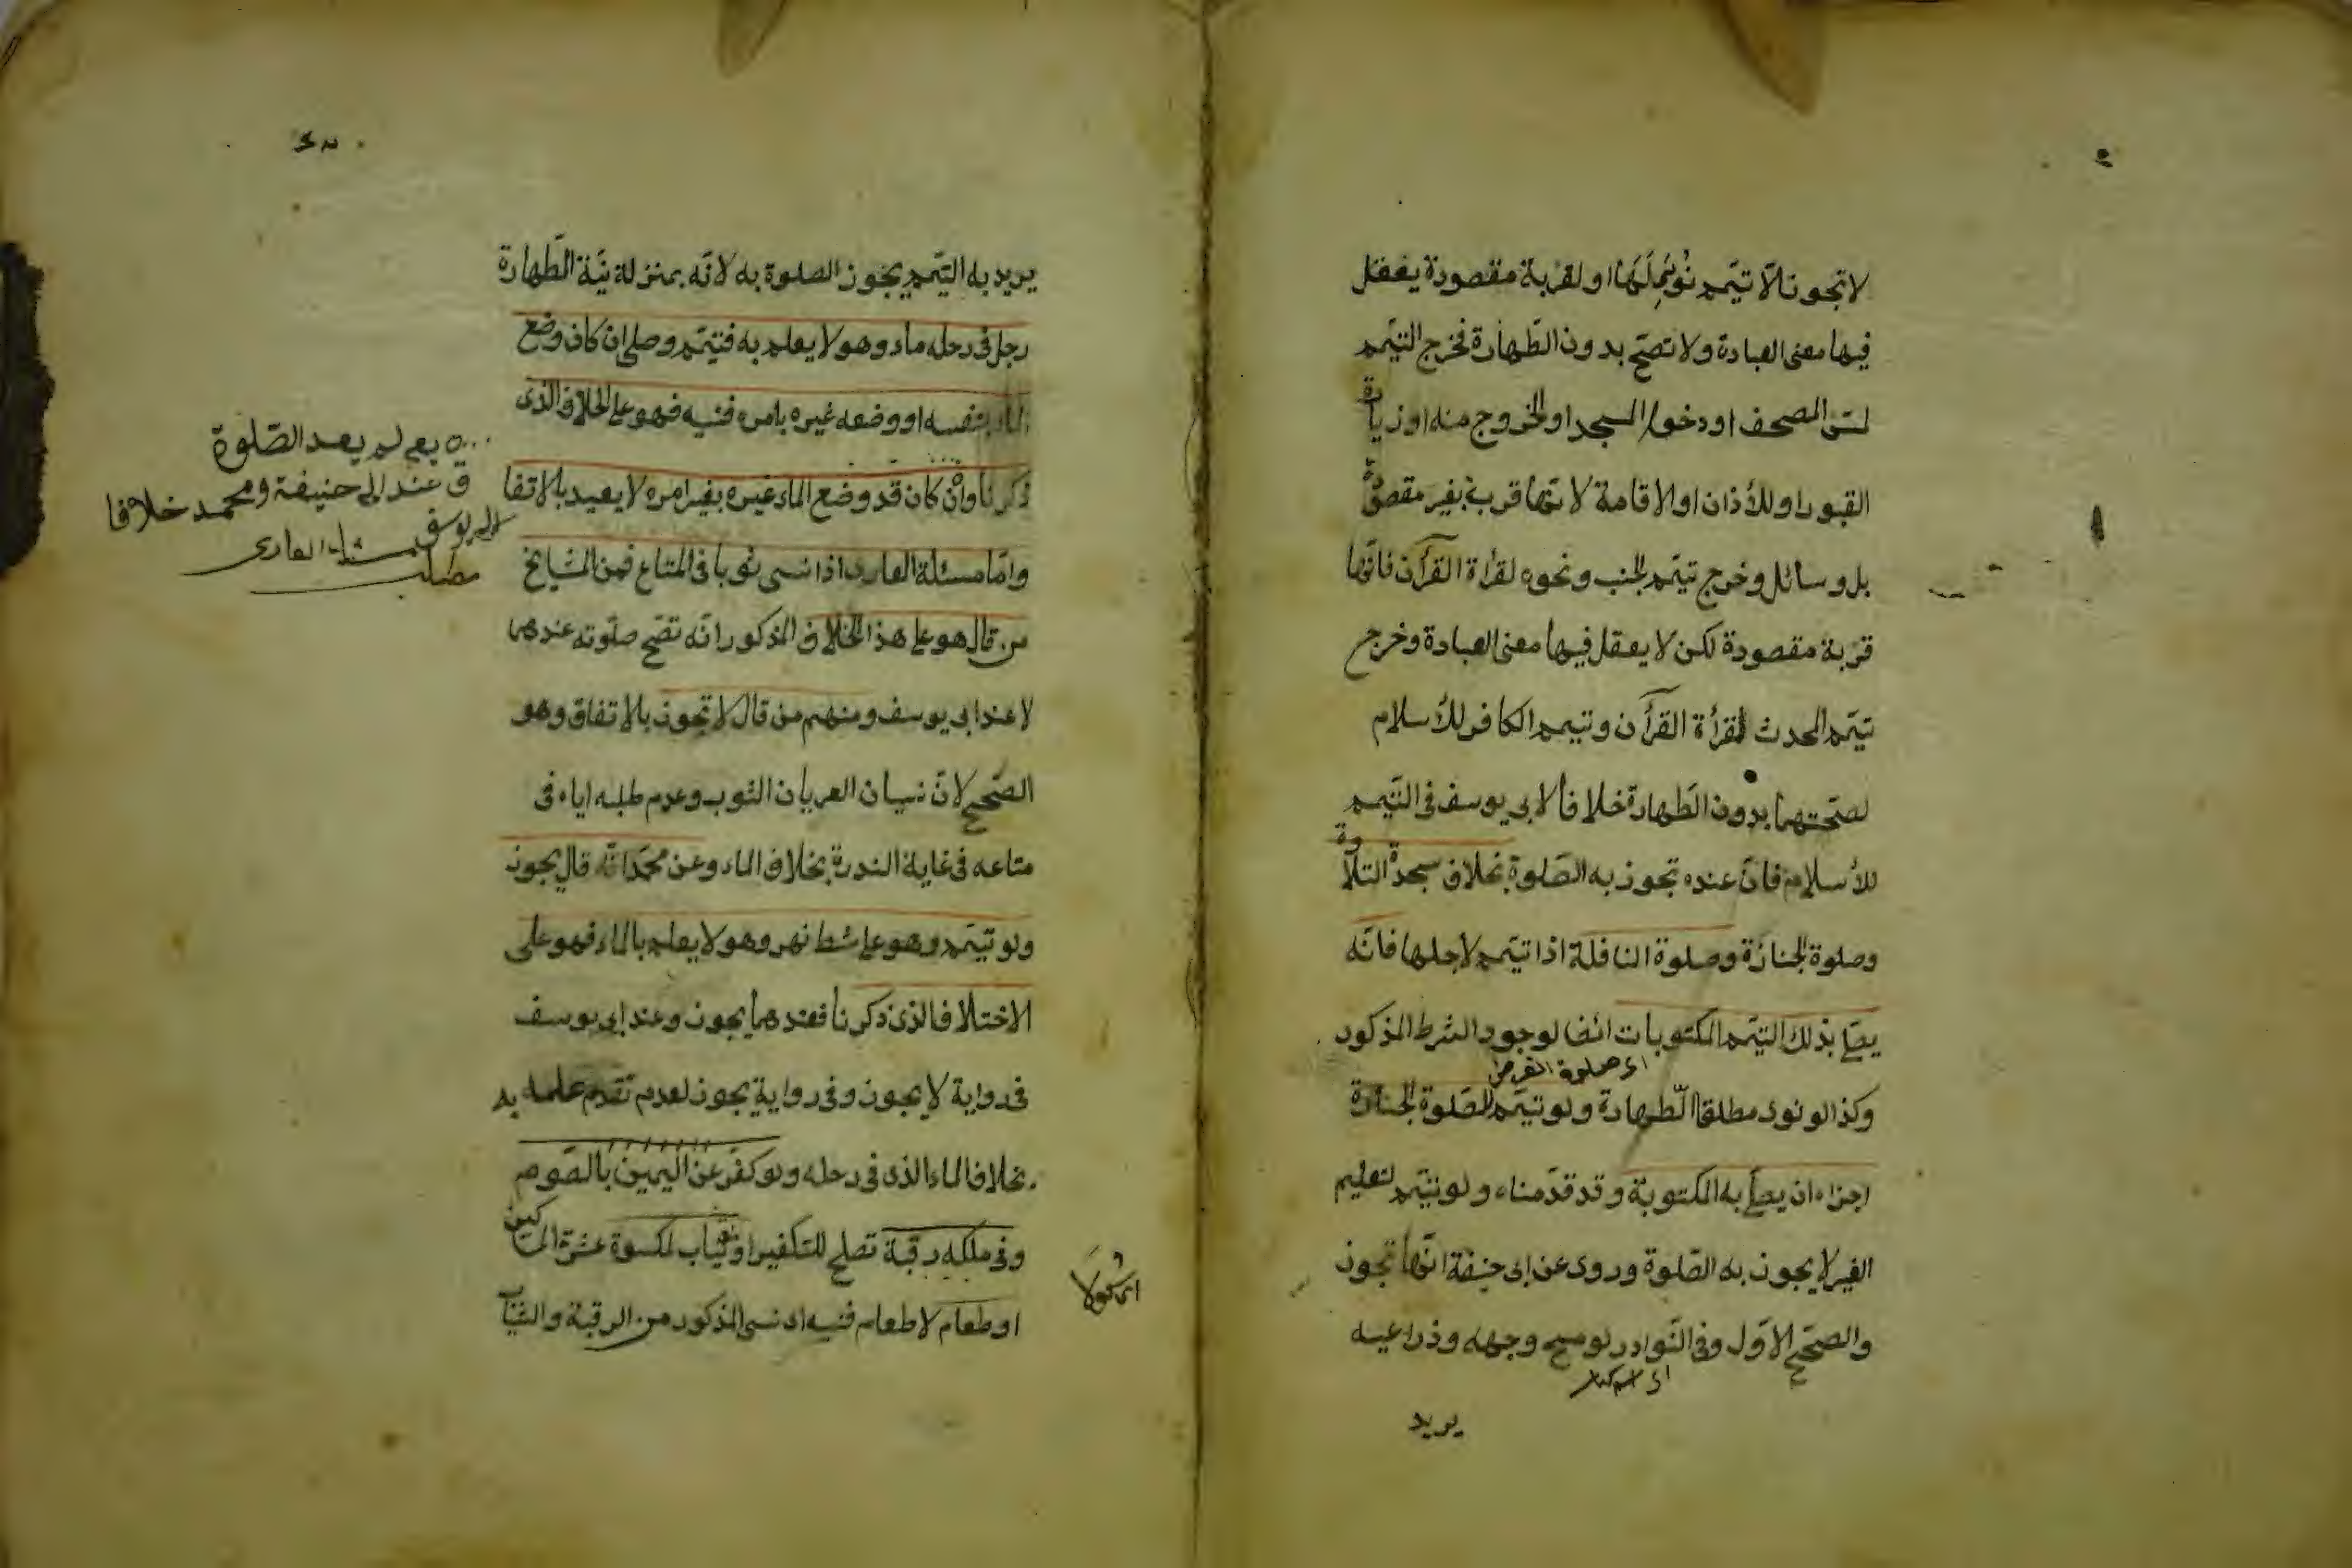 لا تجوز الّا تيمّم نُوِىَ لَهَا او لقربة مقصودة يعقل
فيها معنى العبادة ولا تصحّ بدون الطّهارة فخرج التيمّم
لمسّ المصحف او دخول المسجد او الخروج منه او زيارة
القبور او للأذان او الاقامة لانّها قربة بغير مقصودة
بل وسائل وخرج تيمّم الجنب ونحوه لقرأة القرآن فانّها
قربة مقصودة لكن لا يعقل فيها معنى العبادة وخرج
تيمّم المحدث لقرأة القرأن وتيمم الكافر للأسلام
لصحّتهما بدون الطّهارة خلافاً لابى يوسف فى التيّمم
للأسلام فانّ عنده تجوز به الصّلوة بخلاف سجدة التلاوة
وصلوة الجنازة وصلوة النافلة اذا تيمّم لاجلها فانّه
يصلّى بذلك التيّمم المكتوبات ايضا لوجود الشرط المذكور
اى صلوة الفرض
وكذا لو نوى مطلق الطّهارة ولو تيمّم لصّلوة الجنازة
اجزاه ان يصلّى به المكتوبة وقد قدّمناه ولو تيمّم لتعليم
الغير لا يجوز به الصّلوة وروى عن ابى حنيفة انّها تجوز
والصحّيح الاوّل وفى النّوادر لو مسح وجهه وذراعيه
يريد
يريد به التيّمم يجوز الصلوة به لانّه بمنزلة نيّة الطّهارة
رجل فى رحله ماء وهو لا يعلم به فتيمّم وصلى ان كان وضع
الماء بنفسه او وضعه غيره بامره فنسيه فهو على الخلاف الذى
ذكرنا وان كان قد وضع الماء غيره بغير امره لا يعيد بالاتفا
وامّا مسئلة العارى اذا نسى ثوبا فى المتاع فمن المشايخ
من قال هو على هذا الخلاف المذكور انّه تصّح صلوته عندهما
لا عند ابى يوسف ومنهم من قال لا تجوز بالاتفاق وهو
الصّحيح لانّ نسيان العريان الثوب وعدم طلبه اياه فى
متاعه فى غاية الندرة بخلاف الماء وعن محمّد انّه قال يجوز
ولو تيمّم وهو على شط نهر وهو لا يعلم بالماء فهو على
الاختلاف الذى ذكرنا فعندهما يجوز وعند ابى يوسف
فى رواية لا يجوز وفى رواية يجوز لعدم تقدم علمه به
بخلاف الماء الذى فى رحله ولو كفّر عن اليمين بالصّوم
وفى ملكه رقبة تصلح للتكفير او ثياب لكسوة عشرة المساكين
او طعام لاطعام فنسيه اى نسى المذكور من الرقبة والثّياب
لم يعد الصّلوة
عند ابى حنيفة ومحمد خلافا
لابى يوسف مسئلة العارى
مطلب